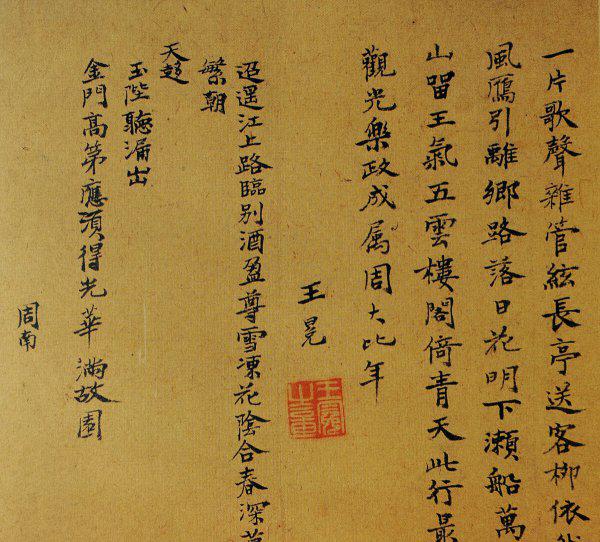 一片歌聲雜管絃長亭送客柳依
風鴈引離鄉路落日花明下瀨船萬
山留王氣五雲樓閣倚青天此行最
觀光樂政成属周大比年
王冕
迢遞江上路臨别酒盈尊雪凍花陰合春深
繁朝
天趨
玉陛聽漏出
金門高第應須得光華滿故園
周南